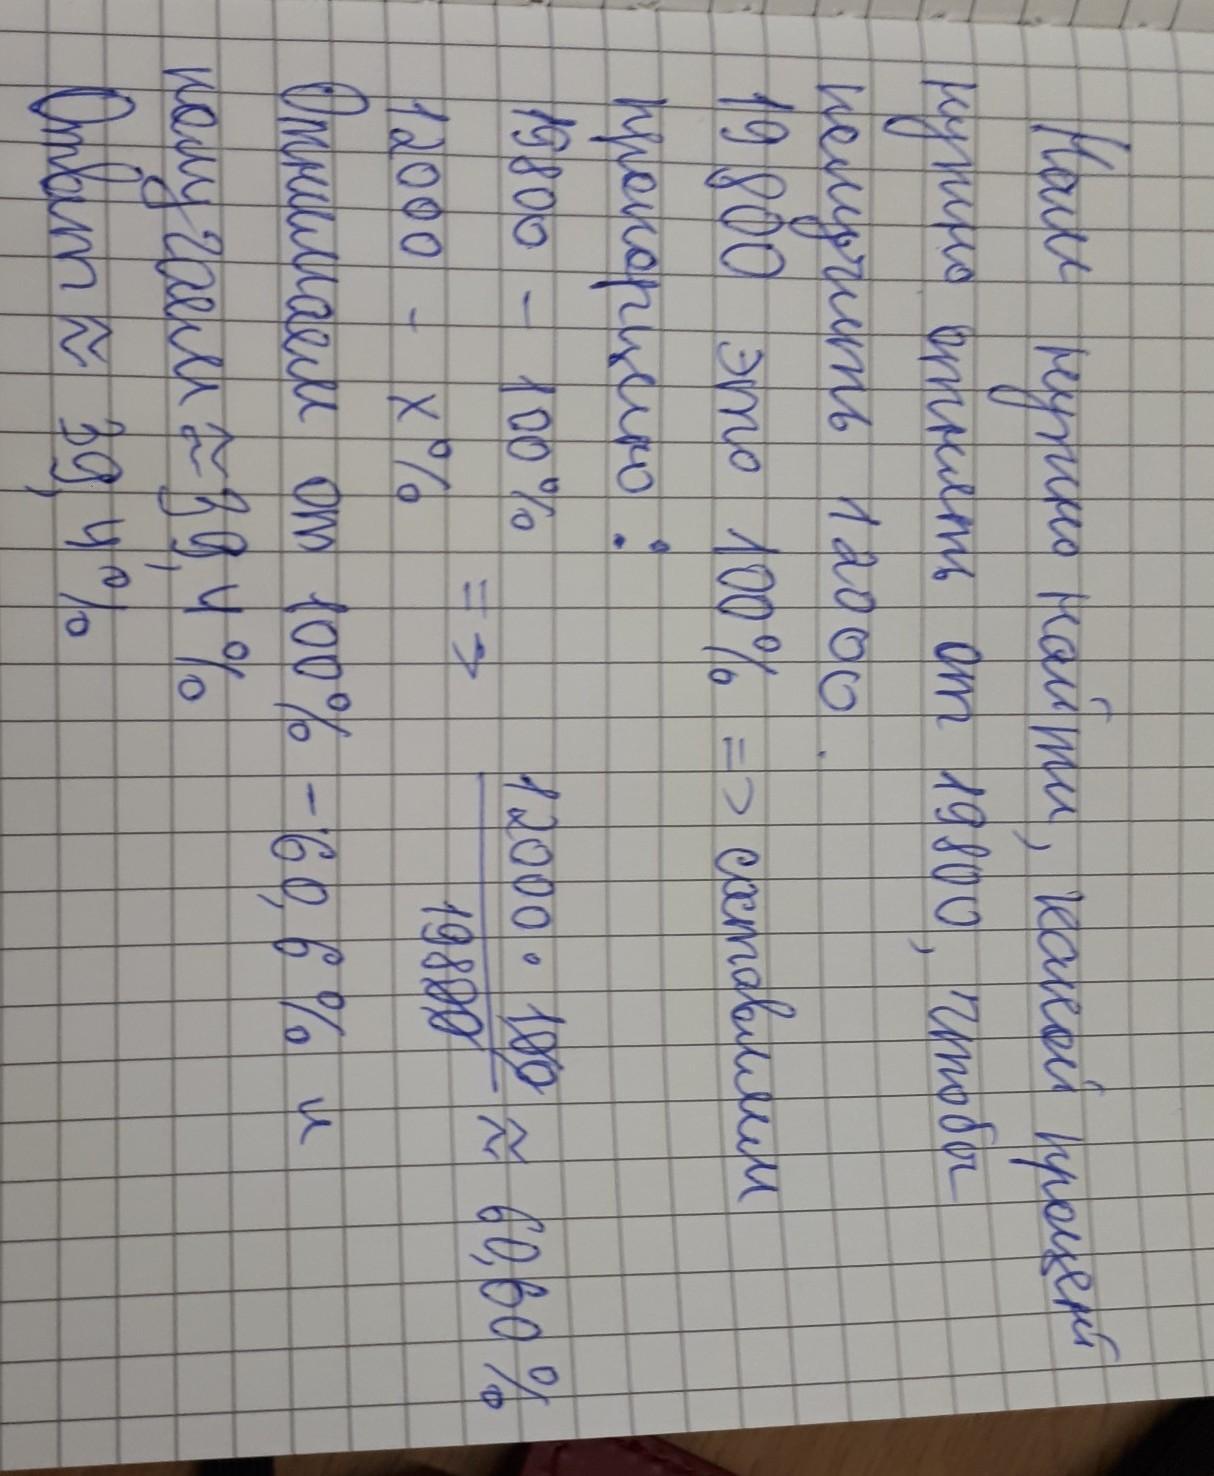 Нам нужно найти, какой процент
нужно отнять от 19800, чтобы
получить 12000.
19800 это 100% => составим
пропорцию:
19800 - 100%
12000 - x%
=>
12000 · 100
19800
≈ 60,60%
Отнимаем от 100% - 60,6% и
получаем ≈ 39,4%
Ответ ≈ 39,4%